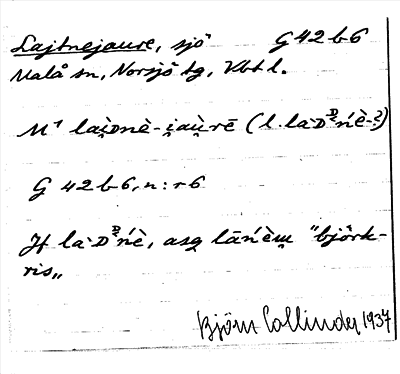 Lajtnejaure, sjö G 42 b 6
Malå sn, Norsjö tg, Vbt l.
M¹ lai̯Dnè-i̯au̯rē (l. la·Dᴰńè-?)
G 42 b 6, n: r 6
Jf la·Dᴰńè, asg lāńèm "björk-
ris„
Björn Collinder 1937